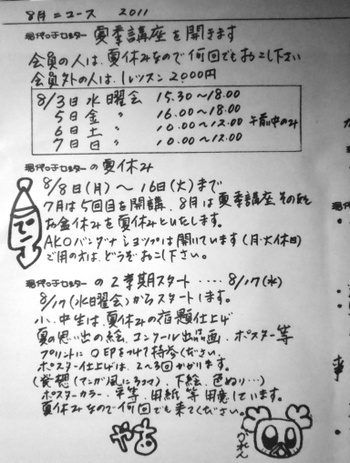 8月ニュース 2011
夏季講座を開きます
会員の人は、夏休みなので何回でもおこし下さい
会員外の人は、1レッスン2000円
8/3日 水 水曜会 15.30〜18.00
5日 金 〃 16.00〜18.00
6日 土 〃 10.00〜12.00 午前中のみ
7日 日 〃 10.00〜12.00
の夏休み
8/8日(月)〜16日(火)まで
7月は5回目を開講、8月は夏季講座その後を
お盆休みを夏休みといたします。
AKOバンダナショップは開いています(月・火休日)
ご用の方は、どうぞおこし下さい。
の2学期スタート ‥‥ 8/17(水)
8/17(水曜会)からスタートします。
小、中生は、夏休みの宿題仕上げ
夏の思い出の絵、コンクール出品画、ポスター等
プリントに○印をつけて持参ください。
ポスター仕上げは、2〜3回かかります。
(発想(マンガ風に)、下絵、色ぬり…)
ポスターカラー、筆等、用紙等用意しています。
夏休みなので何回でも来てください。